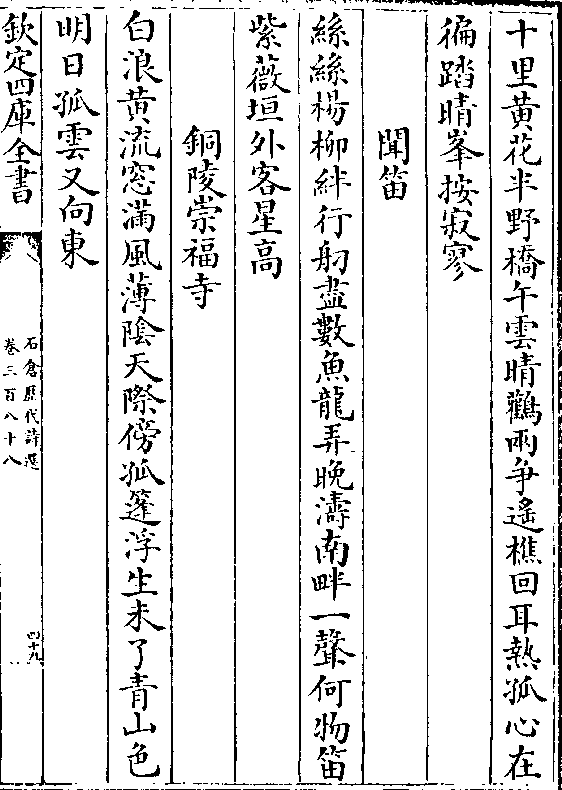 十里黄花半野橋午雲晴鸛雨爭遙樵回耳熱孤心在
徧踏晴峯按寂寥
聞笛
絲絲楊柳絆行舠盡數魚龍弄晚濤南畔一聲何物笛
紫薇垣外客星高
銅陵崇福寺
白浪黄流窓滿風薄陰天際傍孤篷浮生未了青山色
明日孤雲又向東
欽定四庫全書
石倉歷代詩選
卷三百八十八
四十九